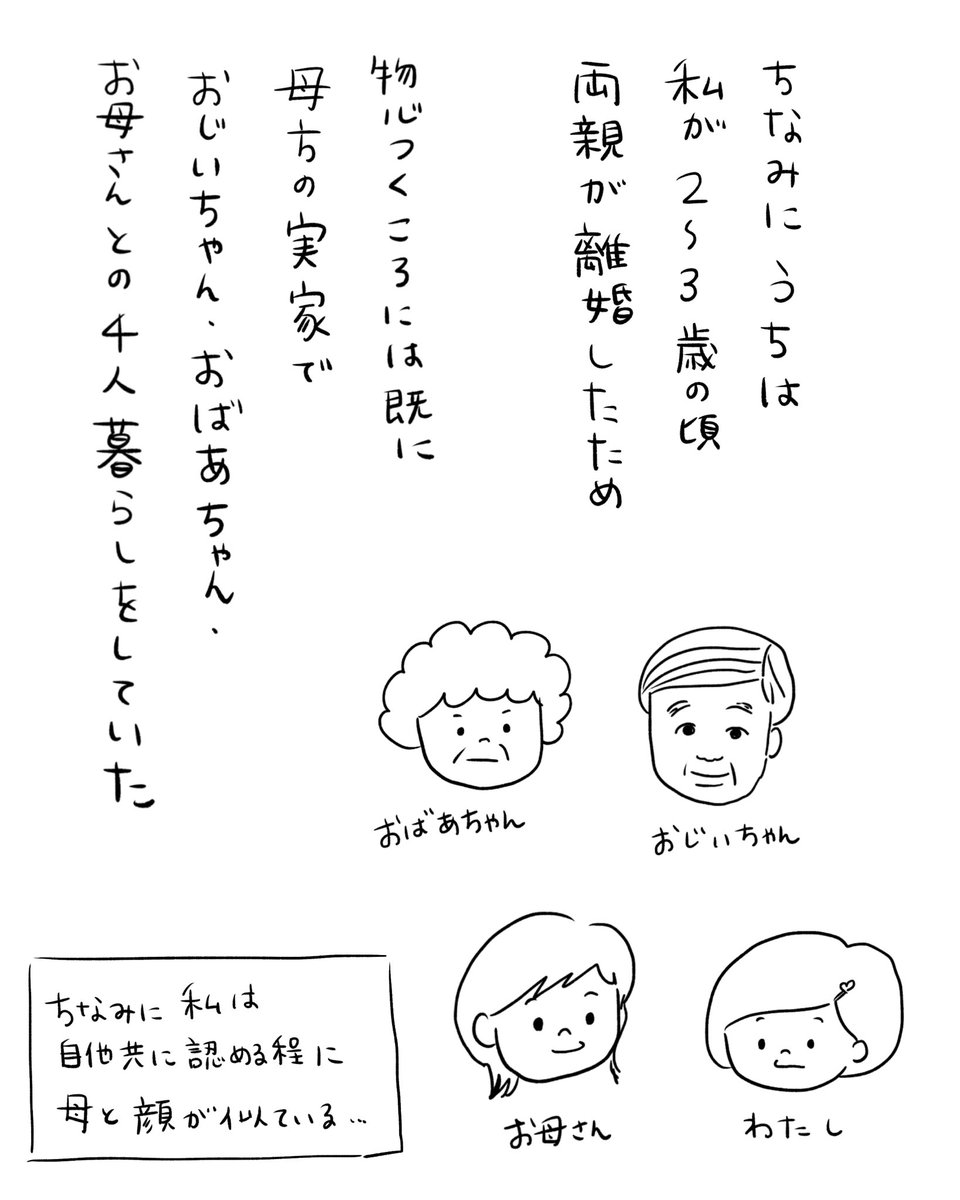 ちなみにうちは
私が2〜3歳の頃
両親が離婚したため
物心つくころには既に
母方の実家で
おじいちゃん・おばあちゃん・
お母さんとの4人暮らしをしていた
おばあちゃん
おじいちゃん
お母さん
わたし
ちなみに私は
自他共に認める程に
母と顔が似ている…